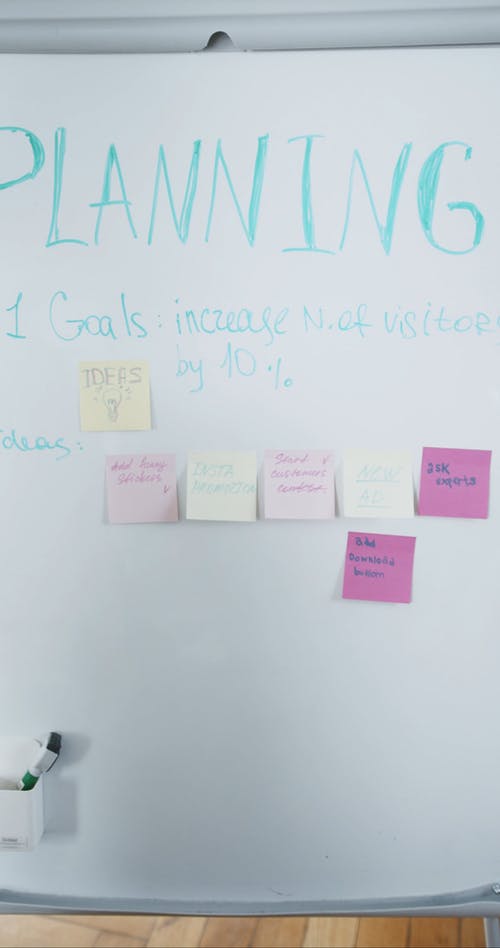 PLANNING
1 Goals: increase N. of visitors
by 10 %
IDEAS
ideas:
Add funny
stickers
INSTA
PROMOTION
Start
customers
contest
NEW
AD
ask
experts
add
Download
button